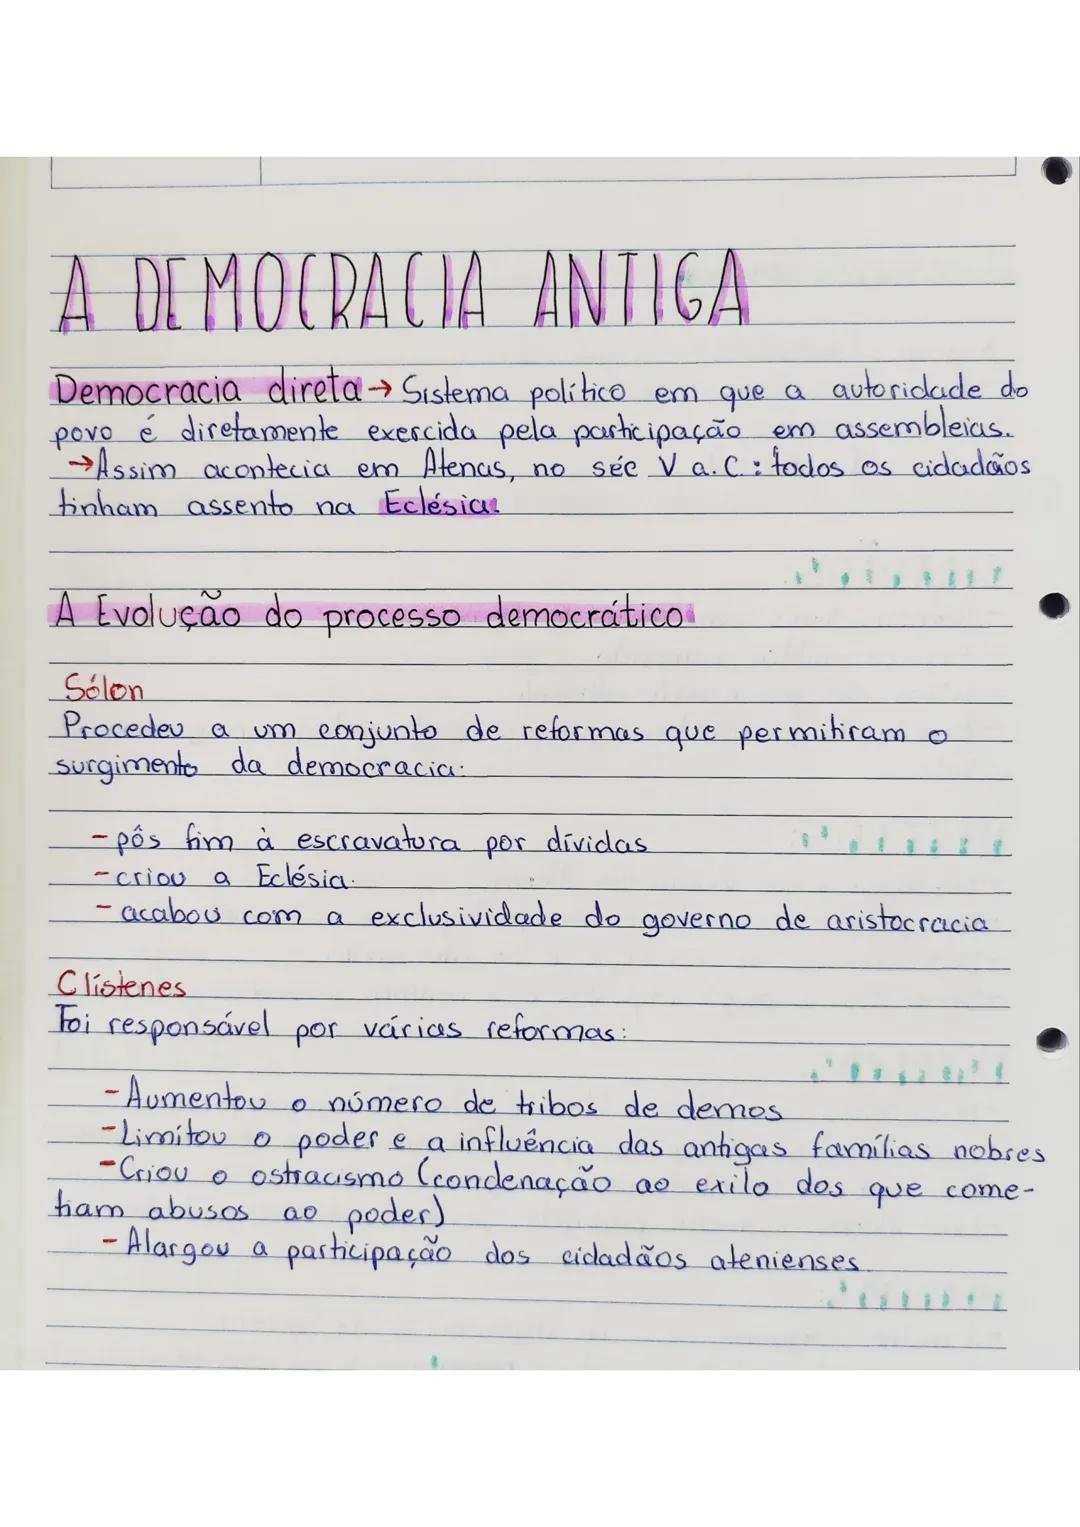 A DEMOCRACIA ANTIGA
Democracia direta → Sistema político em que a autoridade do
povo é diretamente exercida pela participação em assembleias.
→ Assim acontecia em Atenas, no séc V a.C.: todos os cidadãos
tinham assento na Eclésia.
A Evolução do processo democrático
Sólon
Procedeu a um conjunto de reformas que permitiram o
surgimento da democracia:
- pôs fim à escravatura por dívidas
- criou a Eclésia.
- acabou com a exclusividade do governo de aristocracia
Clístenes
Foi responsável por várias reformas:
- Aumentou o número de tribos de demos
- Limitou o poder e a influência das antigas famílias nobres
- Criou o ostracismo (condenação ao exilo dos que come-
tiam abusos ao poder)
- Alargou a participação dos cidadãos atenienses.